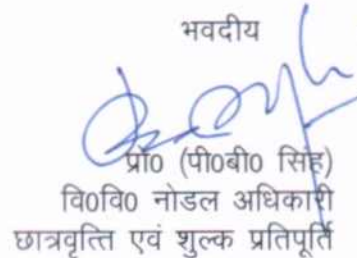 भवदीय
प्रो0 (पी0बी0 सिंह)
वि0वि0 नोडल अधिकारी
छात्रवृत्ति एवं शुल्क प्रतिपूर्ति